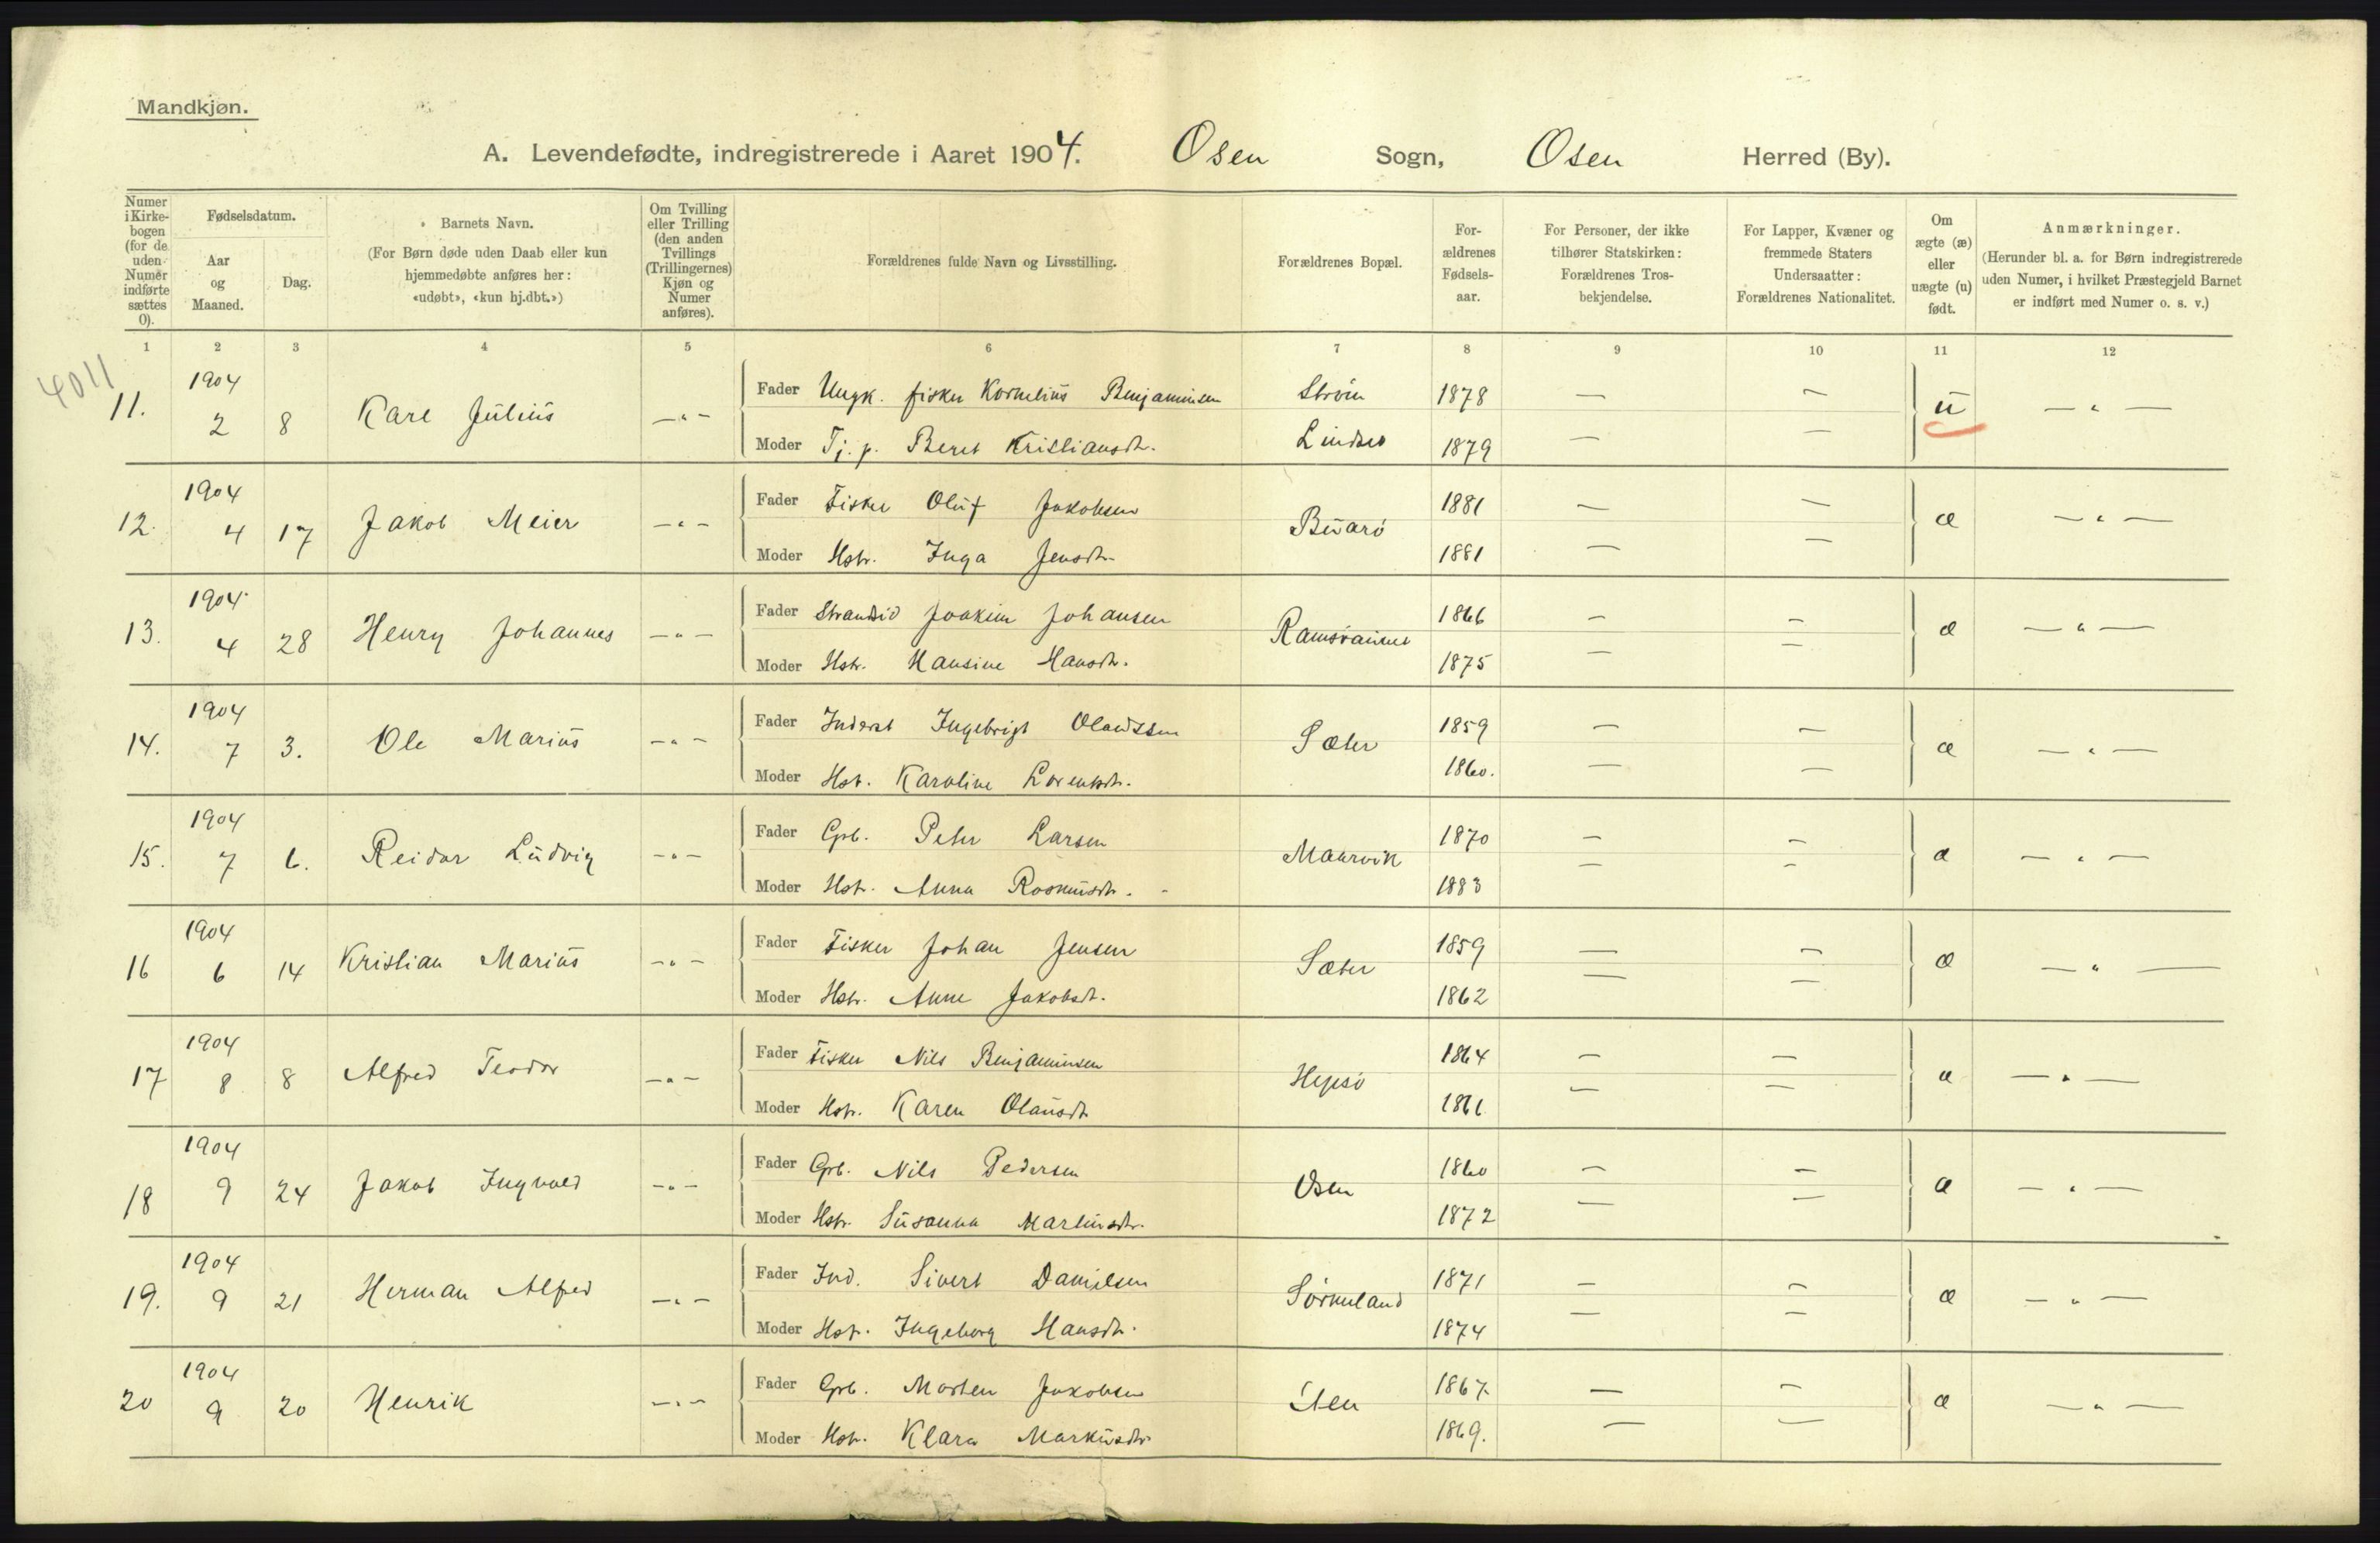 Mandkjøn.
A. Levendefødte, indregistrerede i Aaret 1904. Osen Sogn, Osen Herred (By).
Numer i Kirkebogen (for de uden Numer indførte sættes 0).
Fødselsdatum.
Aar og Maaned.
Dag.
Barnets Navn.
(For Børn døde uden Daab eller kun hjemmedøbte anføres her: «udøbt», «kun hj.dbt.»)
Om Tvilling eller Trilling (den anden Tvillings (Trillingernes) Kjøn og Numer anføres).
Forældrenes fulde Navn og Livsstilling.
Forældrenes Bopæl.
Forældrenes Fødselsaar.
For Personer, der ikke tilhører Statskirken: Forældrenes Trosbekjendelse.
For Lapper, Kvæner og fremmede Staters Undersaatter: Forældrenes Nationalitet.
Om ægte (æ) eller uægte (u) født.
Anmærkninger.
(Herunder bl. a. for Børn indregistrerede uden Numer, i hvilket Præstegjeld Barnet er indført med Numer o. s. v.)
1 2 3 4 5 6 7 8 9 10 11 12
4011
11. 1904 2 8 Karl Julius — " — Fader Ungk. fisker Kornelius Benjaminsen Strøm 1878 — — u — " —
Moder Tj. p. Beret Kristiansdtr. Lindsø 1879 — —
12. 1904 4 17 Jakob Meier — " — Fader Fisker Oluf Jakobsen Buarø 1881 — — æ — " —
Moder Hstr. Inga Jensdtr. 1881 — —
13. 1904 4 28 Henry Johannes — " — Fader Strandsid Joakim Johansen 1866 — — æ — " —
Moder Hstr. Hansine Hansdtr. 1875 — —
14. 1904 7 3. Ole Marius — " — Fader Inderst Ingebrigt Sæter 1859 — — æ — " —
Moder Hst. Karoline Lorentsdtr. 1860. — —
15. 1904 7 6. Reidar Ludvig — " — Fader Grb. Peter Larsen 1870 — — æ — " —
Moder Hstr. Anna Rasmusdtr. 1883 — —
16 1904 6 14 Kristian Marius — " — Fader Fisker Johan Jensen Sæter 1859 — — æ — " —
Moder Hstr. Anne Jakobsdt. 1862 — —
17 1904 8 8 Alfred Teodor — " — Fader Fisker Nils Benjaminsen Hepsø 1864 — — æ — " —
Moder Hstr. Karen Olausdtr 1861 — —
18 1904 9 24 Jakob Ingvald — " — Fader Grb. Nils Pedersen Osen 1860 — — æ — " —
Moder Hstr. Susanna Martinsdtr. 1872 — —
19. 1904 9 21 Herman Alfred — " — Fader Ind. Sivert Danielsen Sørmeland 1871 — — æ — " —
Moder Hstr. Ingeborg Hansdtr. 1874 — —
20 1904 9 20 Henrik — " — Fader Grb. Morten Jakobsen 1867 — — æ — " —
Moder Hstr. Klara Markusdtr 1869. — —